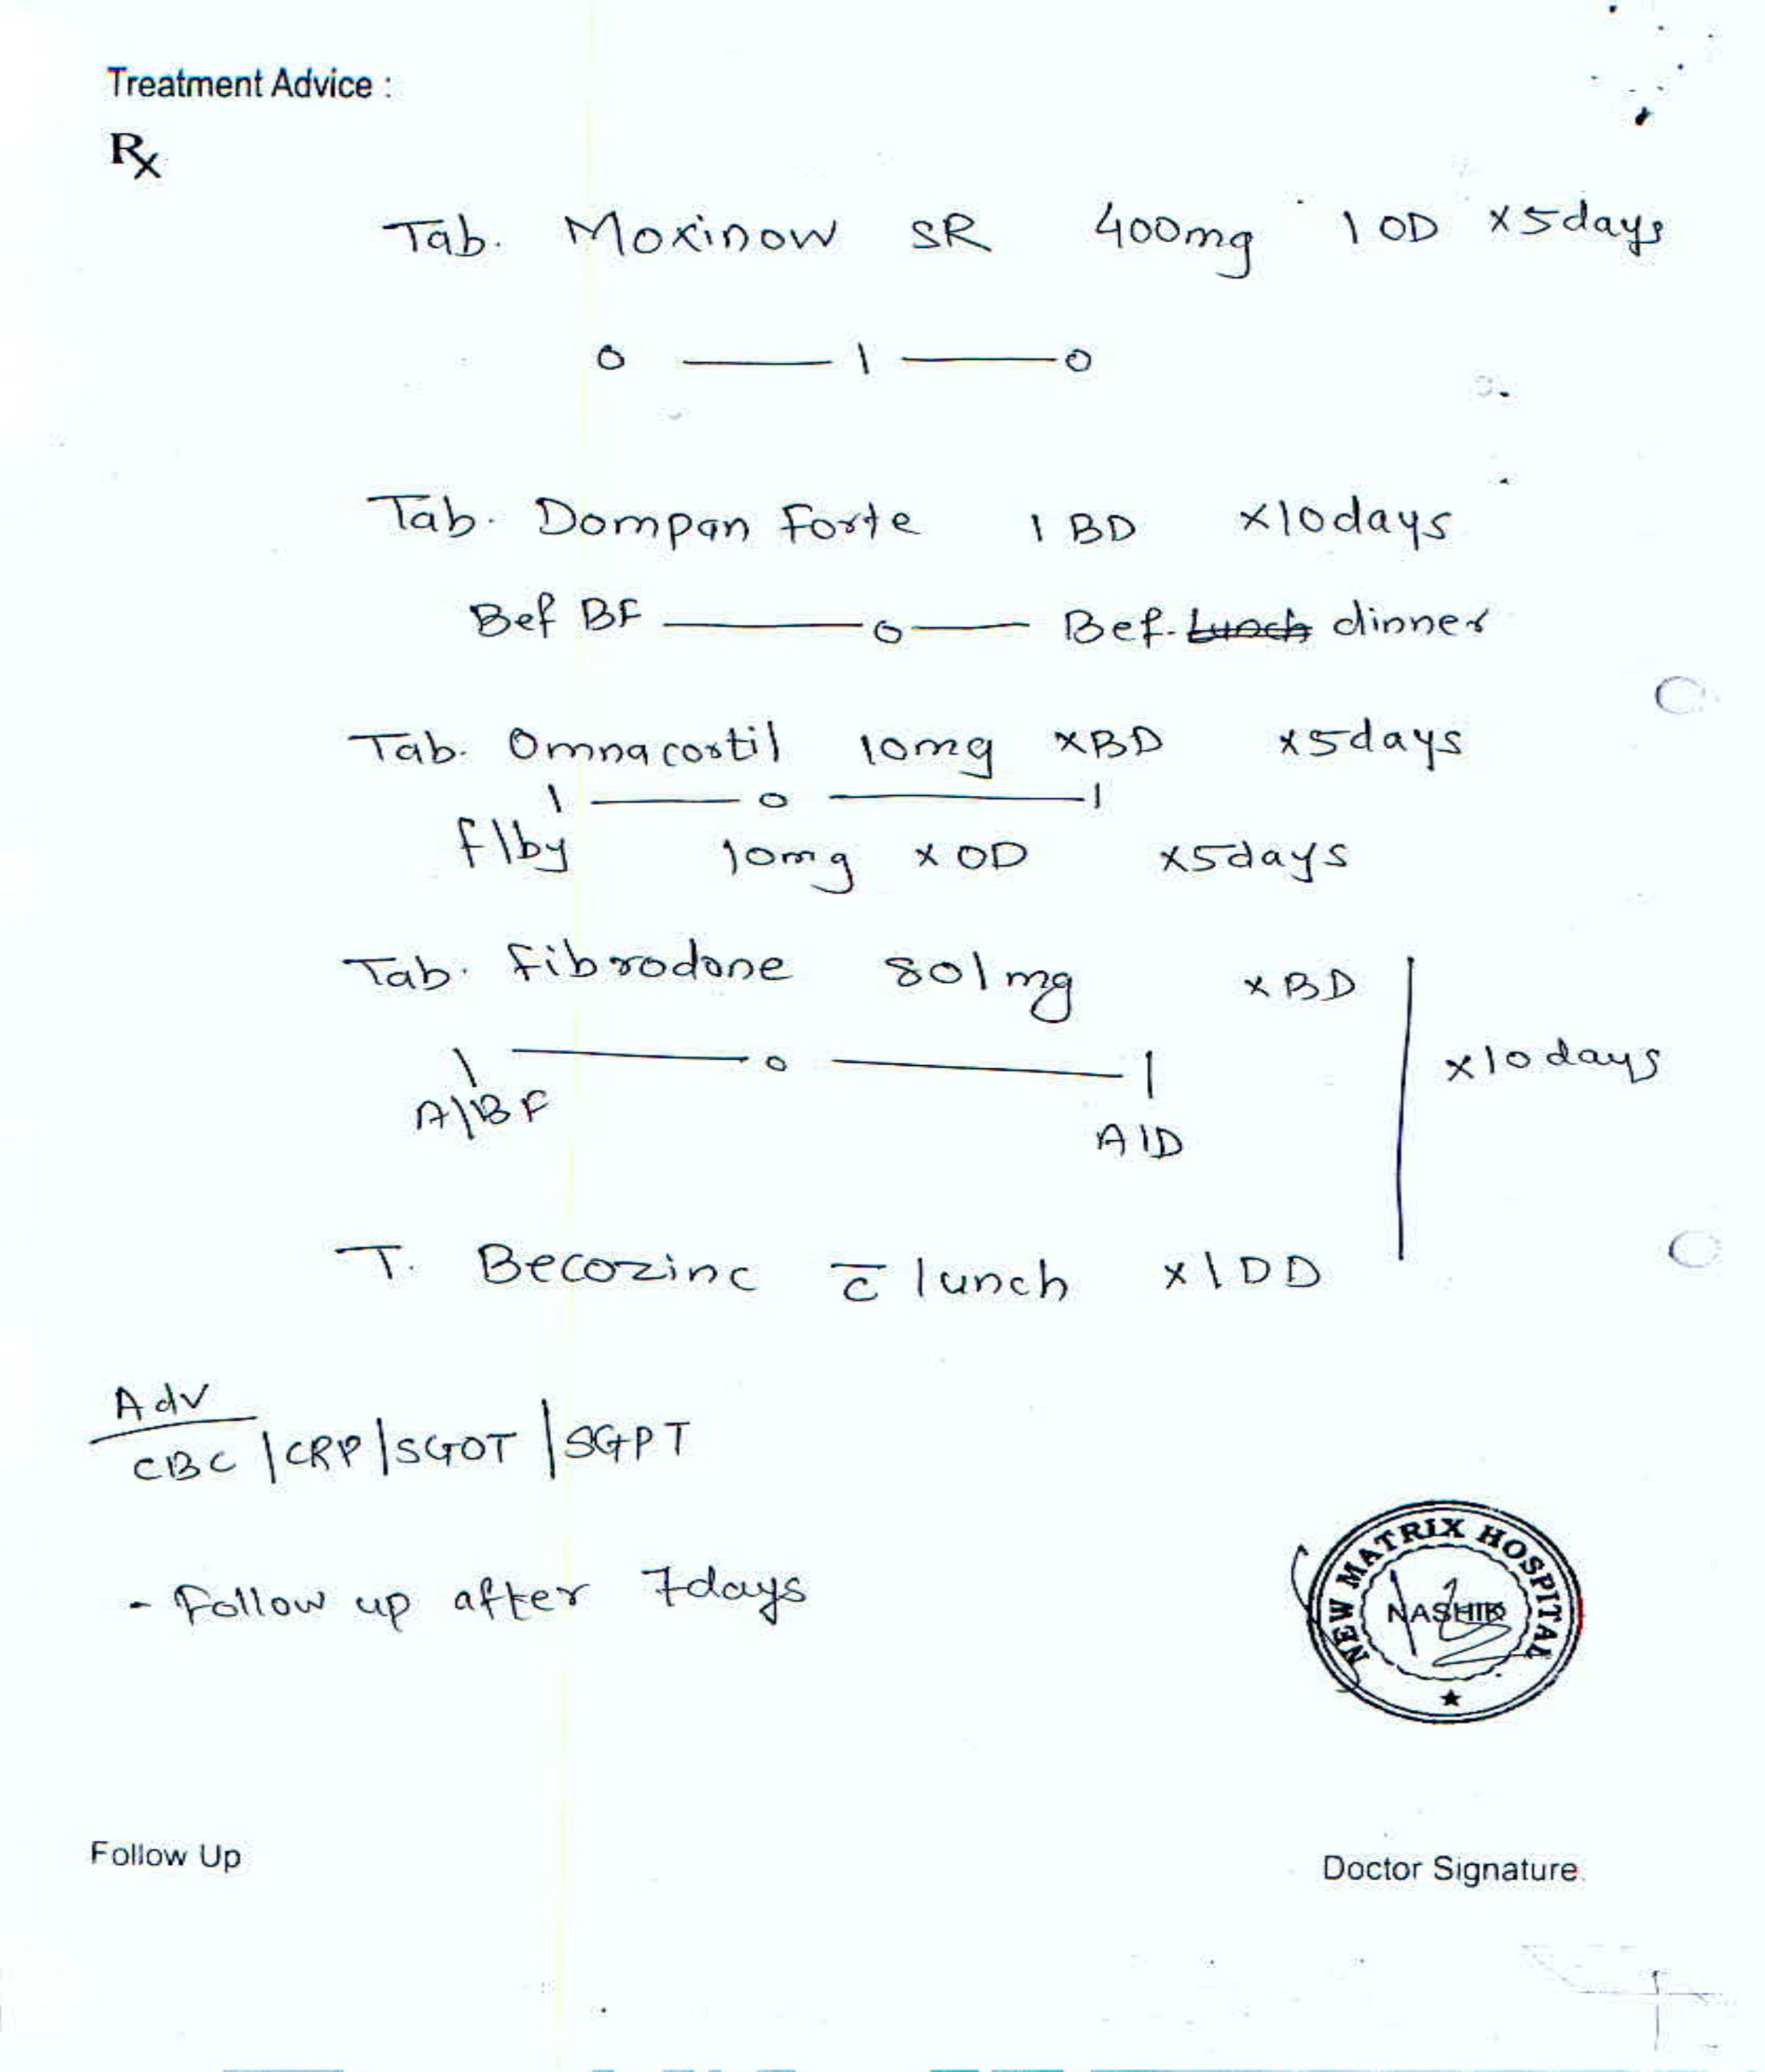 Treatment Advice :
Rx
Tab. Moxinow SR 400mg 1 OD x5days
0 — 1 — 0
Tab. Dompan Forte 1 BD x10days
Bef BF — 0 — Bef. Lunch dinner
Tab. Omnacortil 10mg xBD x5days
1 — 0 — 1
f/by 10mg x OD x5days
Tab. Fibrodone 801mg x BD
x10 days
1 — 0 — 1
A/BF
A/D
T. Becozinc c̄ lunch x1 OD
Adv
CBC | CRP | SGOT | SGPT
- Follow up after 7days
NEW MATRIX HOSPITAL
NASHIK
Follow Up
Doctor Signature.